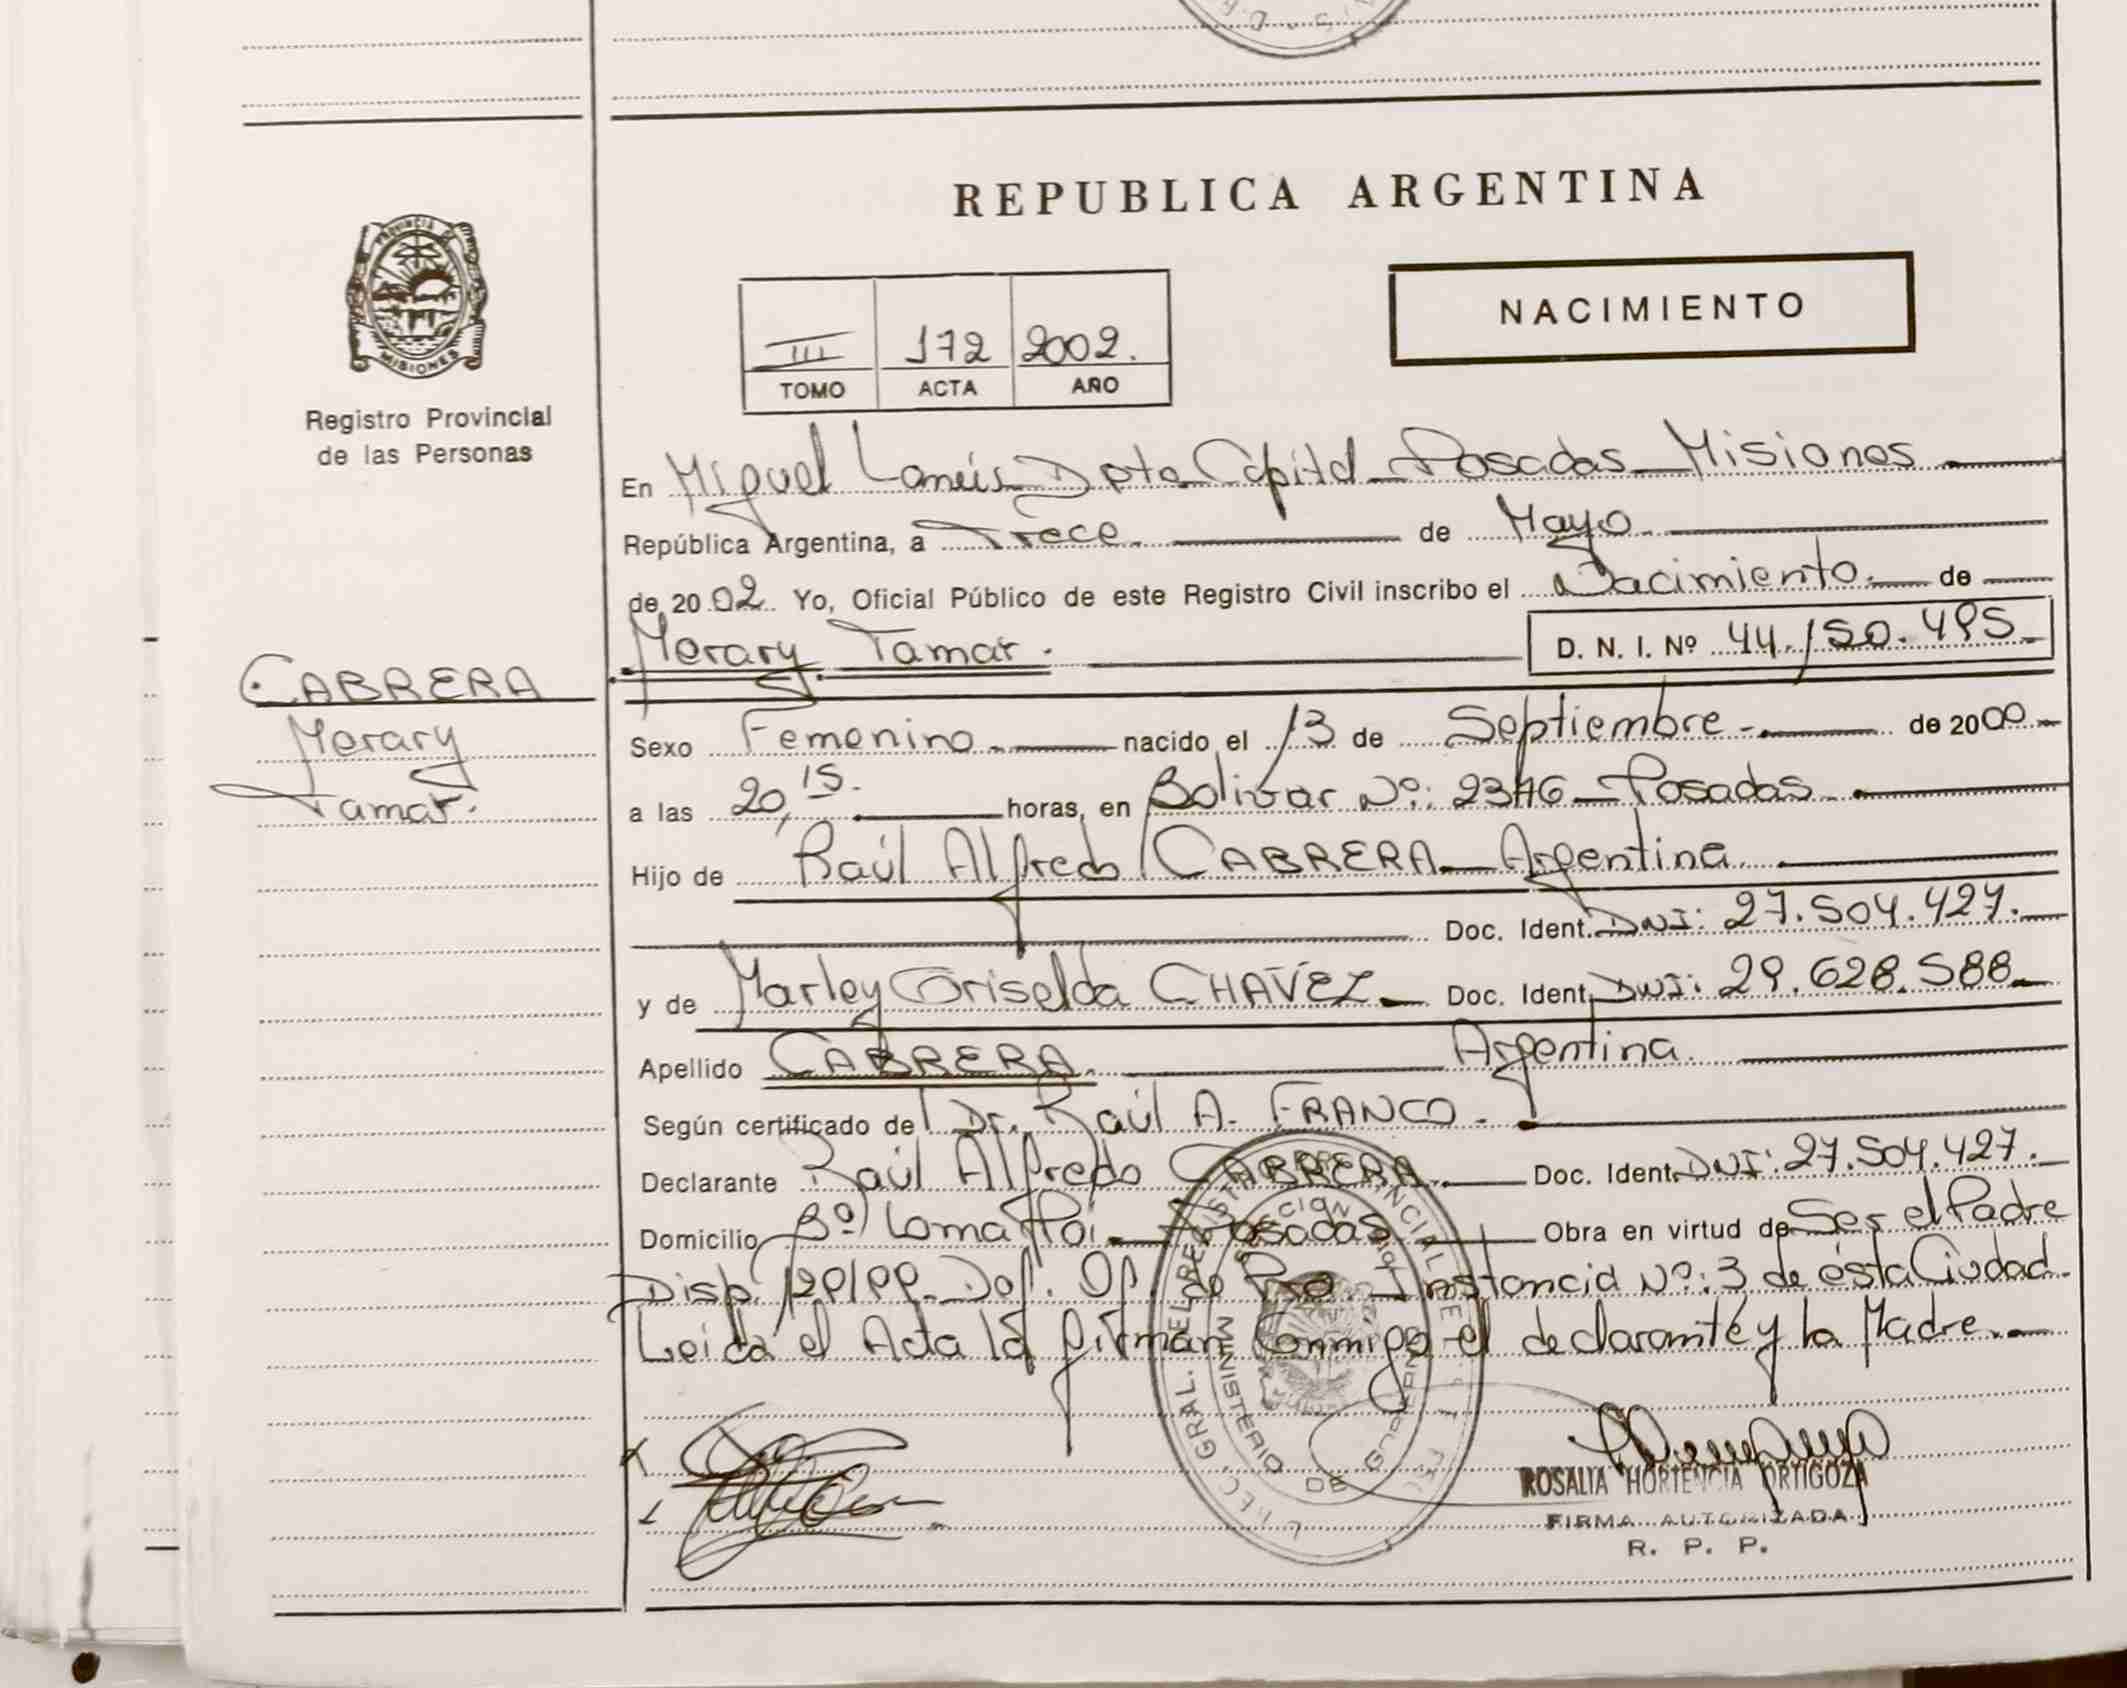 REPUBLICA ARGENTINA
NACIMIENTO
III 172 2002.
TOMO ACTA AÑO
PROVINCIA DE MISIONES
Registro Provincial
de las Personas
En Miguel Lanús Dpto Capital Posadas Misiones
República Argentina, a Trece de Mayo
de 2002 Yo, Oficial Público de este Registro Civil inscribo el Nacimiento de
Merary Tamar. D. N. I. Nº 44.150.495
CABRERA
Merary
Tamar.
Sexo Femenino nacido el 13 de Septiembre de 2000
a las 20,15. horas, en Bolivar Nº: 2376 Posadas
Hijo de Raúl Alfredo CABRERA Argentina
Doc. Ident. DNI: 27.504.427.
y de Marley Griselda CHAVEZ Doc. Ident. DNI: 29.628.588
Apellido CABRERA. Argentina.
Según certificado de Dr. Raúl A. FRANCO.
Declarante Raúl Alfredo CABRERA. Doc. Ident. DNI: 27.504.427.
Domicilio Bº Loma Poi Posadas Obra en virtud de Ser el Padre
Disp. 129/99 Def. Of. de Pra. Instancia Nº: 3 de ésta Ciudad
Leida el Acta la firman Conmigo el declarante y la Madre.
MINISTERIO DE GOBIERNO
ROSALIA HORTENCIA ORTIGOZA
FIRMA AUTORIZADA
R. P. P.